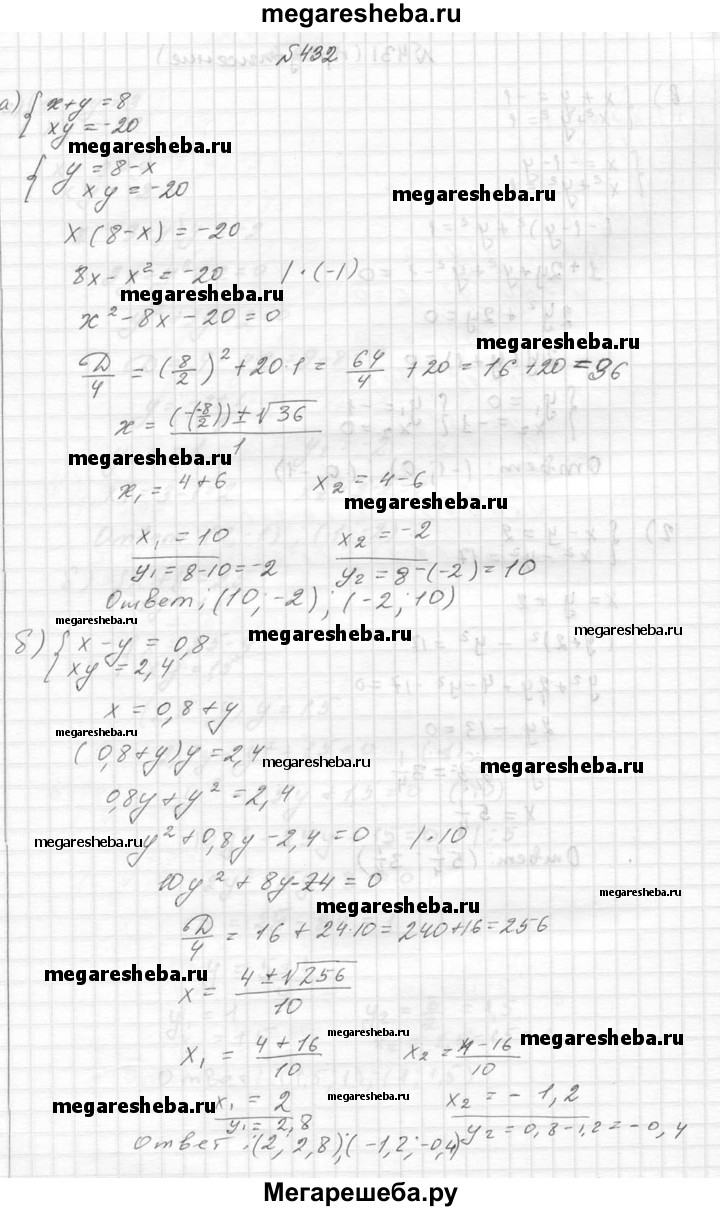 megaresheba.ru
№432
а) { x+y=8
xy=-20
megaresheba.ru
{ y=8-x
xy=-20
megaresheba.ru
x(8-x)=-20
8x-x²=-20 /·(-1)
megaresheba.ru
x²-8x-20=0
megaresheba.ru
D/4 = (8/2)²+20·1= 64/4 +20=16+20=36
x= (-(-8/2))±√36 / 1
megaresheba.ru
x₁=4+6 x₂=4-6
megaresheba.ru
x₁=10 x₂=-2
y₁=8-10=-2 y₂=8-(-2)=10
Ответ: (10;-2); (-2;10)
megaresheba.ru megaresheba.ru megaresheba.ru
б) { x-y=0,8
xy=2,4
x=0,8+y
megaresheba.ru
(0,8+y)y=2,4 megaresheba.ru megaresheba.ru
0,8y+y²=2,4
megaresheba.ru y²+0,8y-2,4=0 /·10
10y²+8y-24=0
megaresheba.ru
megaresheba.ru
D/4 = 16+24·10=240+16=256
megaresheba.ru
x= 4±√256 / 10
megaresheba.ru megaresheba.ru
x₁= 4+16 / 10 x₂= 4-16 / 10
megaresheba.ru megaresheba.ru
x₁=2 x₂=-1,2
y₁=2,8 y₂=0,8-1,2=-0,4
Ответ: (2; 2,8); (-1,2;-0,4)
Мегарешеба.ру